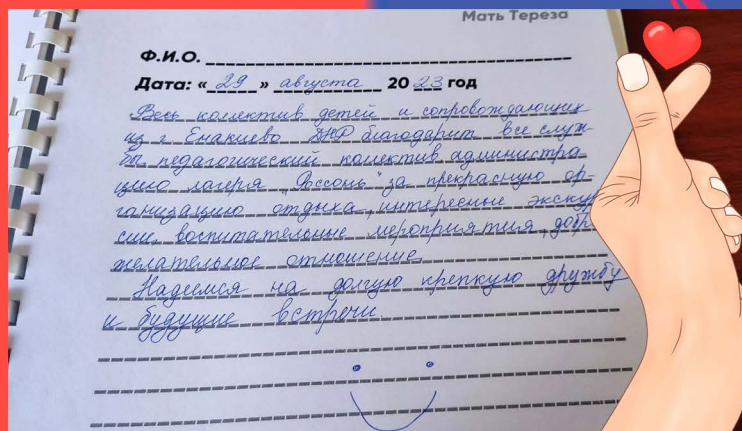 Мать Тереза
Ф.И.О.
Дата: « 29 » августа 20 23 год
Весь коллектив детей и сопровождающих
из г. Енакиево ДНР благодарит все служ
бы педагогический коллектив администра
цию лагеря „Россонь" за прекрасную ор-
ганизацию отдыха, интересные экскур
сии, воспитательные мероприятия, добро
желательное отношение.
Надеемся на долгую крепкую дружбу
и будущие встречи.